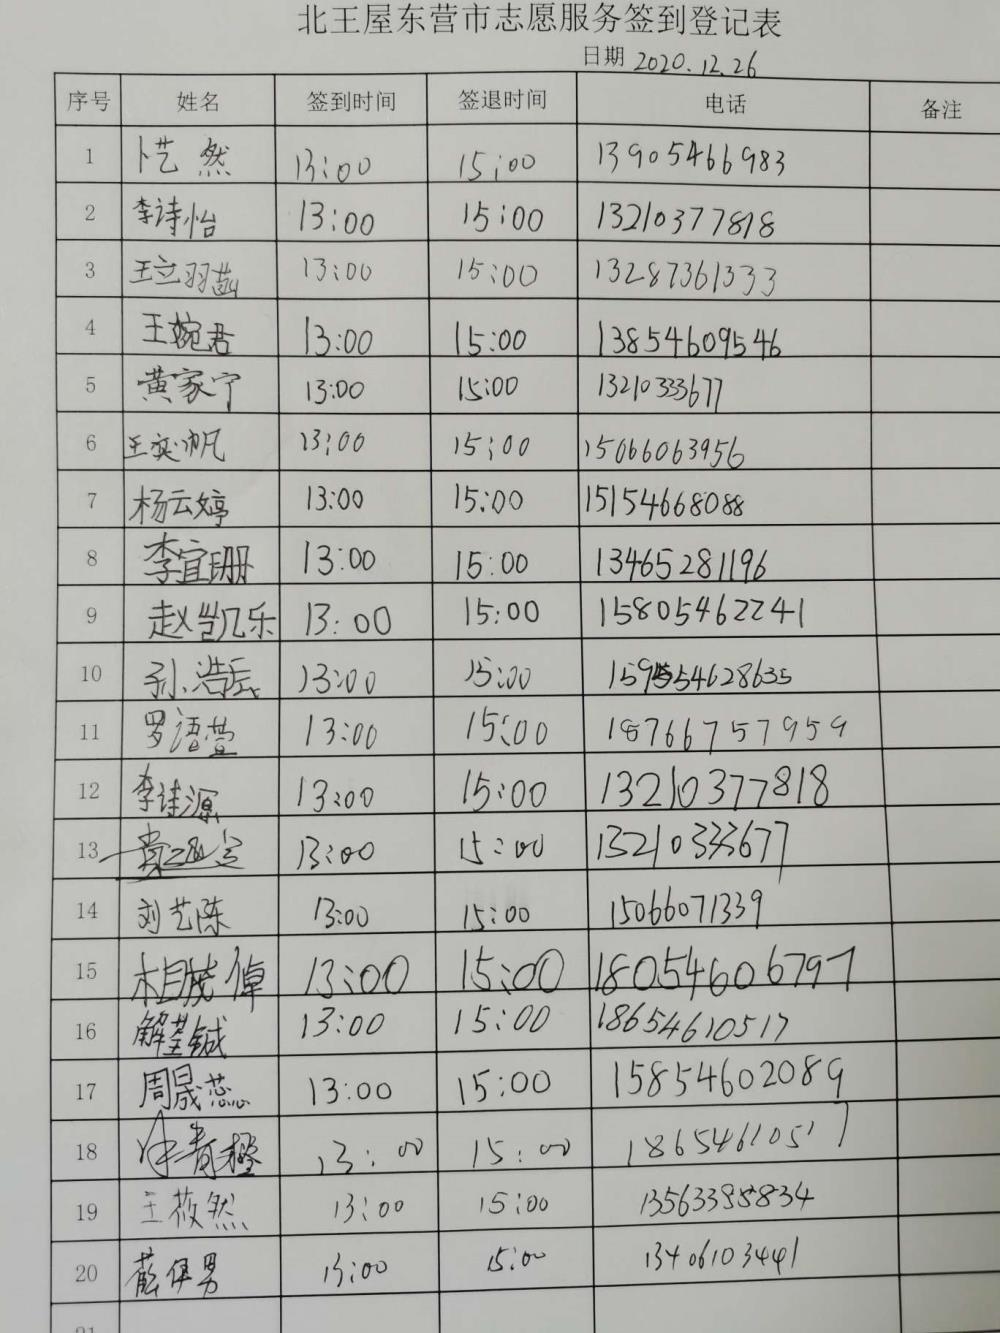 北王屋东营市志愿服务签到登记表
日期 2020.12.26
序号 姓名 签到时间 签退时间 电话 备注
1 卜艺然 13:00 15:00 13905466983
2 李诗怡 13:00 15:00 13210377818
3 王立羽菡 13:00 15:00 13287361333
4 王婉君 13:00 15:00 13854609546
5 黄家宁 13:00 15:00 1321033677
6 王奕帆 13:00 15:00 15066063956
7 杨云婷 13:00 15:00 15154668088
8 李宜珊 13:00 15:00 13465281196
9 赵凯乐 13:00 15:00 15805462241
10 孙浩辰 13:00 15:00
11 罗语萱 13:00 15:00 18766757959
12 李诗源 13:00 15:00 13210377818
13 13:00 15:00 1321033677
14 刘艺陈 13:00 15:00 15066071339
15 相茂倬 13:00 15:00 18054606797
16 解 铖 13:00 15:00 18654610517
17 周晟蕊 13:00 15:00 15854602089
18 13:00 15:00 18654610517
19 王莜然 13:00 15:00 13563398834
20 男 13:00 15:00 13406103441
21